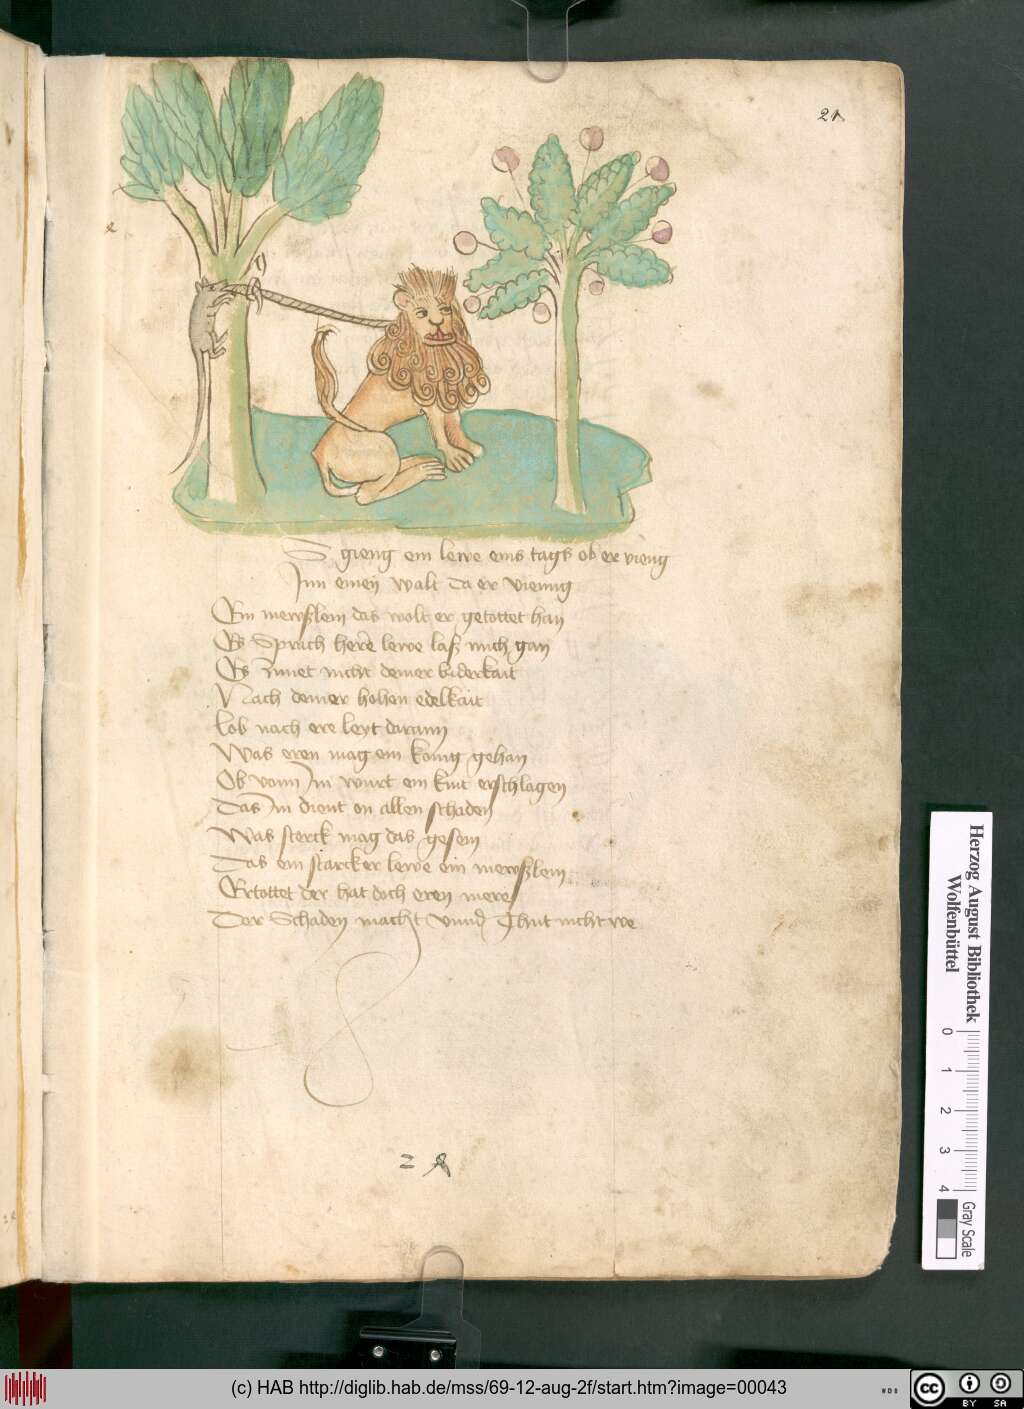 21
S gieng ein lewe eins tags ob er vieng
Inn einen walt da er vienng
Ein mewßlein das wolt er getottet han
Es Sprach here lewe laß mich gan
Es zimet nicht deiner biderkait
Nach deiner hohen edelkait
lob nach ere leyt darann
Was eren mag ein konig gehan
Ob vonn Im wurt ein knit erschlagen
Das Im dient on allen schaden
Was sterck mag das gesein
Das ein starcker lewe ein mewßlein
Ertottet der hat doch eren mere
Der Schaden macht vnnd Thut nicht we
Herzog August Bibliothek
Wolfenbüttel
0 1 2 3 4
Gray Scale
(c) HAB http://diglib.hab.de/mss/69-12-aug-2f/start.htm?image=00043
WDB
cc BY SA